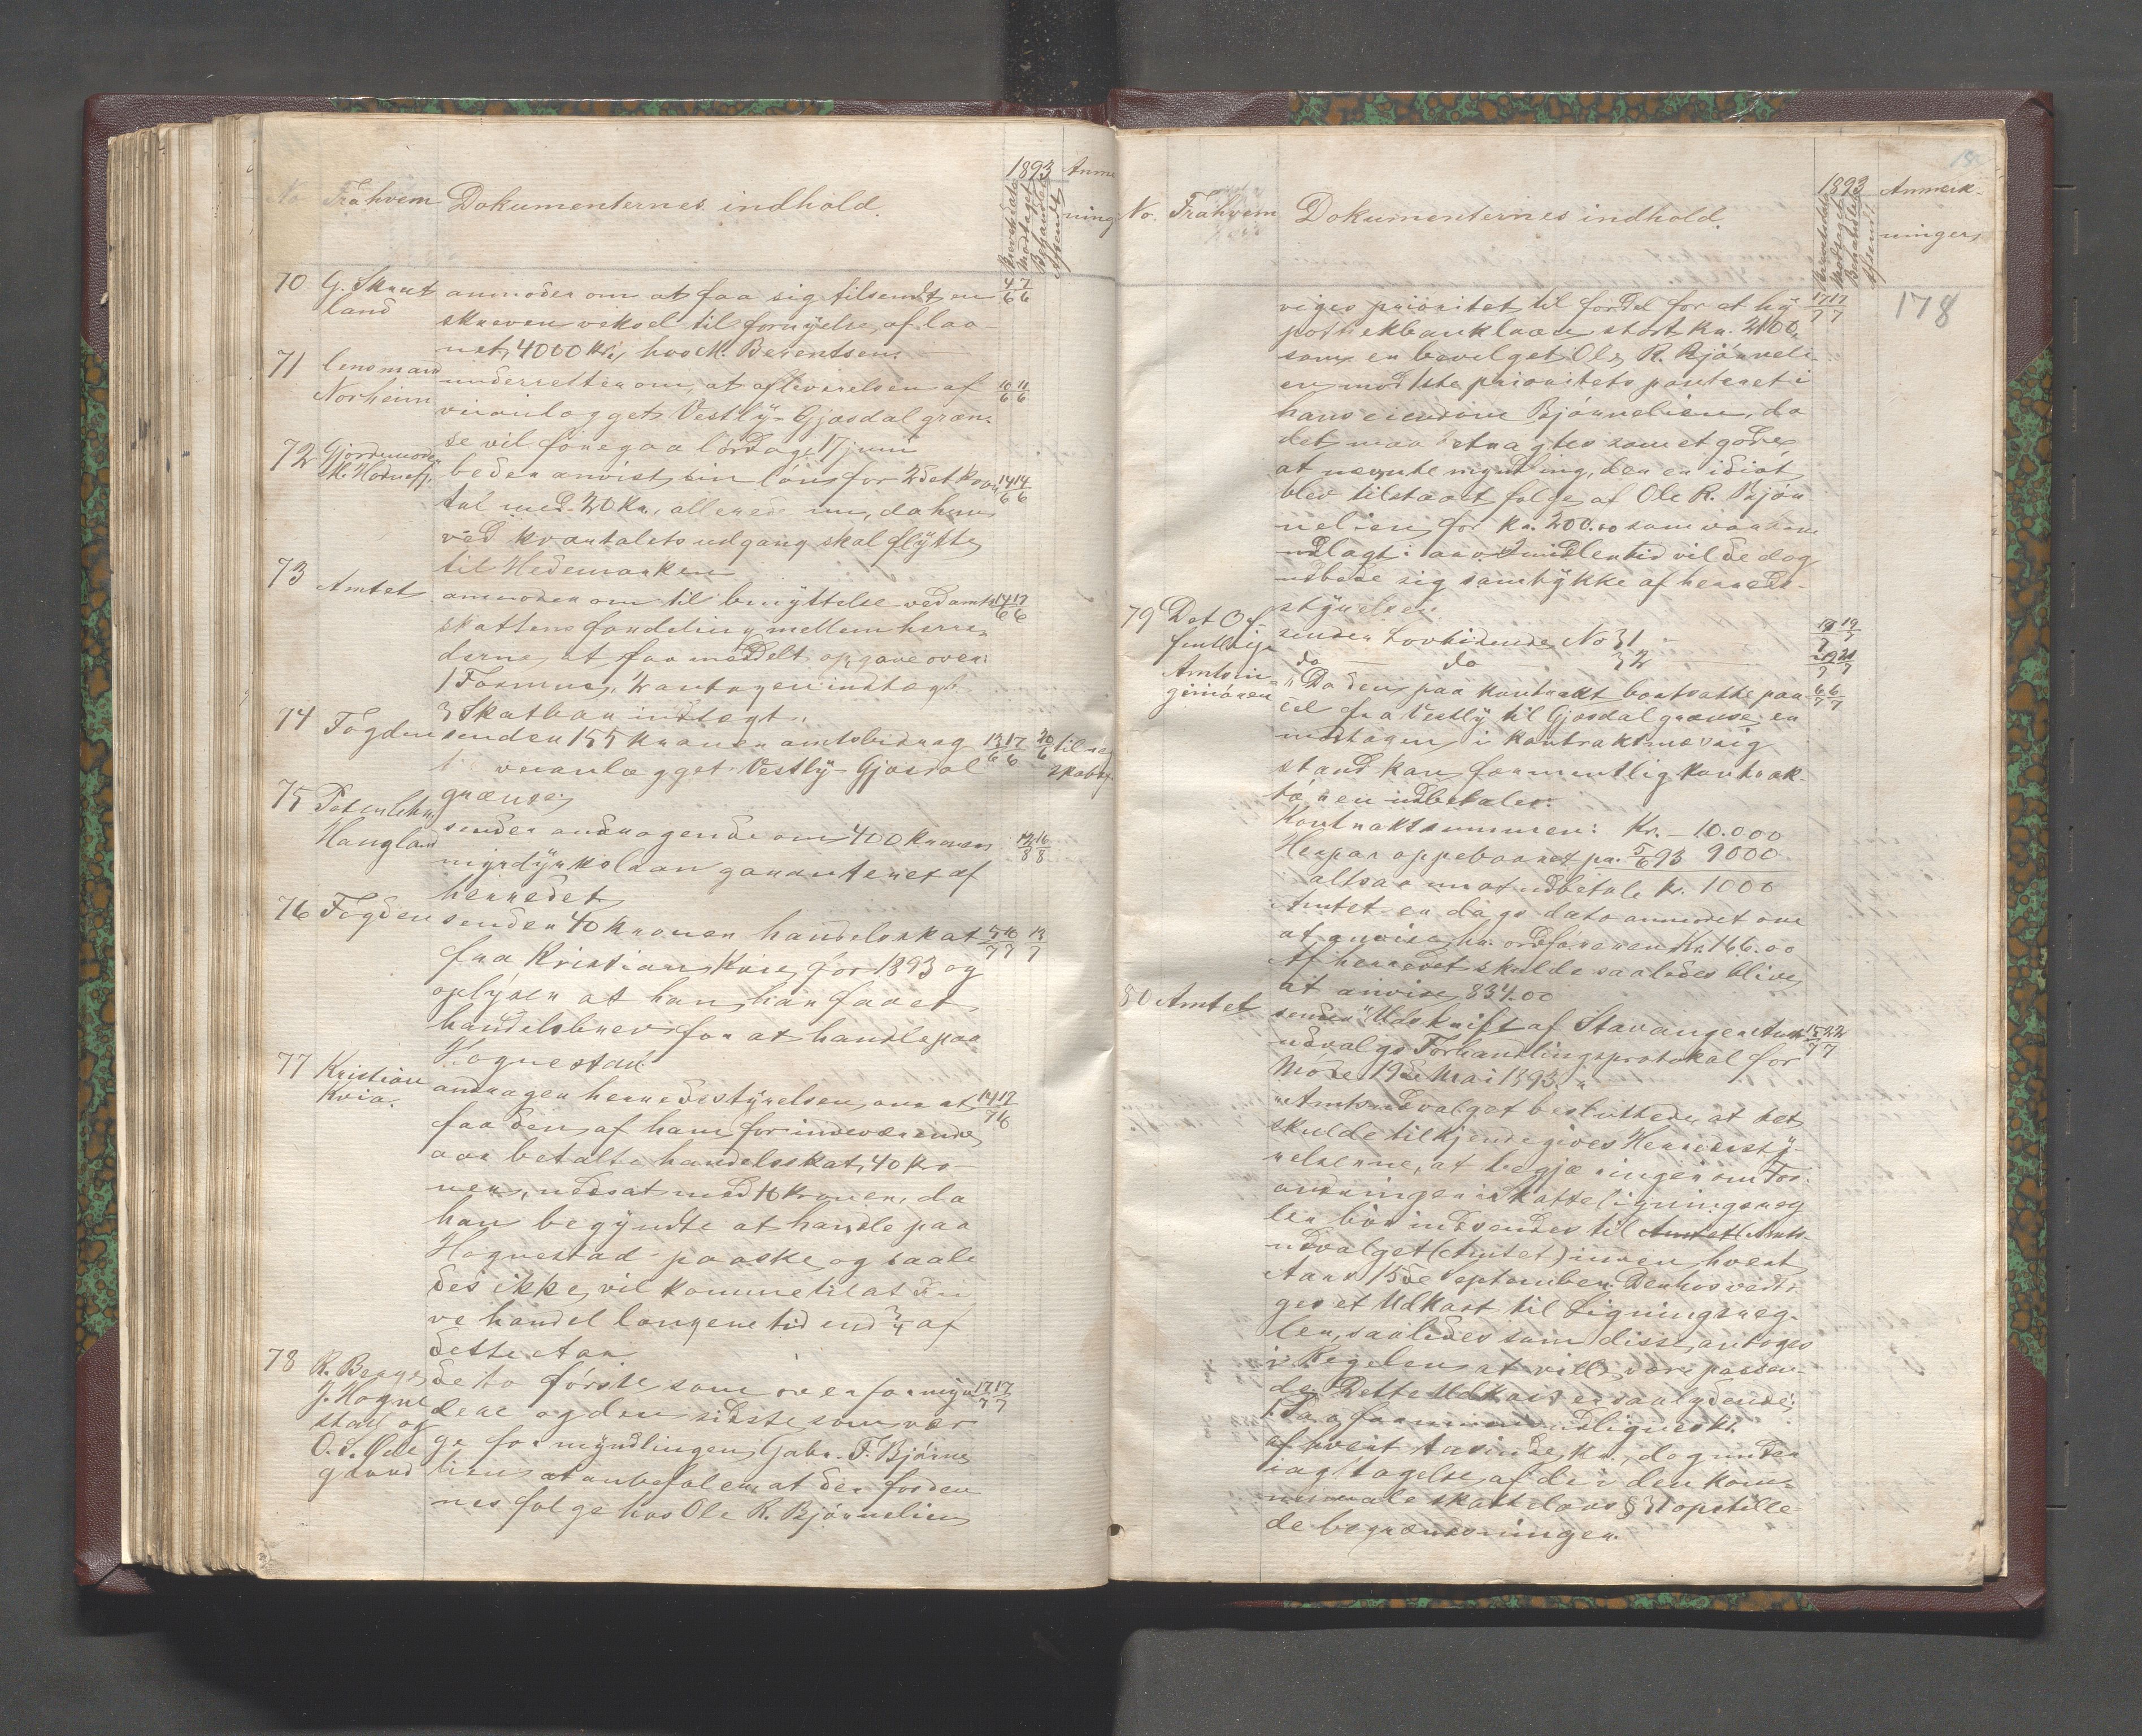 No Frahvem Dokumenternes indhold. 1893 Anme
Brevets dato Modtaget Behandlet Afsendt ning
70 G. Skrut anmoder om at faa sig tilsendt en 4/6 7/6
land skreven veksel til fornyelse af laa-
net, 4000 Kr., hos M. Berentsen.
71 Lensmand underretter om, at afleverelsen af 10/6 11/6
Norheim veianlægget Vestly-Gjæsdal græn-
se vil foregaa lørdag 17 juni
72 Gjordemoder beder anvist sin løn for 2det kvar 14/6 14/6
M. Hodnefj. tal med 20 Kr. allerede nu, da hun
ved kvartalets udgang skal flytte
til Hedemarken
73 Amtet anmoder om til benyttelse ved amts 14/6 17/6
skattens fordeling mellem herre-
derne, at faa meddelt opgave over:
1 Formue, 2 antagen indtægt
3 Skatbar indtægt.
74 Fogden sender 155 kroner amtsbidrag 13/6 17/6 20/6 til
veianlægget Vestly-Gjæsdal
grænse,
75 Peder
Haugland sender andragende om 400 kroners 12/8 16/8
myrdyrkslaan garanteret af
herredet
76 Fogden sender 40 kroner handelsskat 5/7 10/7 12/7
fra Kristian Kvia for 1893 og
oplyser at han har faaet
handelsbrev for at handle paa
Hognestad
77 Kristian andrager herredsstyrelsen om at
Kvia. faa den af ham for indeværende
aar betalte handelsskat, 40 kro-
ner, nedsat med 10 kroner, da
han begyndte at handle paa
Hognestad paaske og saale
des ikke vil komme til at dri
ve handel længere tid end 3/4 af
dette Aar
78 R. Berge, de to første som overformyn 17/7 17/7
J. Hogne dere og den sidste som vær
stad og ge for myndlingen Gabr. T. Bjørne
O. S.
grund lien at anbefaler, at der forden
nes følge hos Ole R. Bjørnelien
No. Frahvem Dokumenternes indhold. 1893 Anmerk-
Brevets dato Modtaget Behandlet Afsendt ninger,
viges prioritet til fordel for et hy 17/7 17/7 178
pothekbanklaan stort kr. 2100,
som er bevilget Ole R. Bjørneli-
en mod 1ste prioritets panteret i
hans eiendom Bjørnelien, da
det maa betragtes som et gode,
at nævnte myndling, der er idiot
blev tilstaaet følge af Ole R. Bjør
nelien for kr. 200.00 som var ham
udlagt i arv. Imidlertid vil de dog
udbede sig samtykke af herreds-
styrelsen
79 Det Of- sender Lovtidende No 31 19/7
fentlige do — do — 32 19/7 21/7
Amtsin- "Da den paa kontrakt bortsatte par 6/7 6/7
geniøren cel fra Vestly til Gjæsdal grænse er
modtagen i kontraktmæssig
stand kan formentlig kontrak-
tøren udbetales:
Kontraktsummen: Kr. - 10.000
Herpaa oppebaaret pr. 5/6 93 9000
altsaa nu at udbetale kr. 1000
Amtet er dags dato anmodet om
at anvise hr. ordføreren Kr. 166.00
Af herredet skulde saaledes blive
at anvise 834.00
80 Amtet sender "Udskrift af Stavanger Amts 15/7 22/7
udvalgs Forhandlingsprotokol for
Møde 19de Mai 1893."
"Amtsudvalget besluttede, at det
skulde tilkjendegives Herredssty-
relserne, at begjæringer om For-
andringer i Skatteligningsreg
ler bør indsendes til Amtet (Amts-
udvalget (Amtet) inden hvert
Aars 15de September. Derhos vedta
ges et Udkast til Ligningsreg-
ler, saaledes som disse antages
i Regelen at ville være passen-
de. Dette Udkast er saalydende:
udlignes kr.
af hvert Tusinde Kr., dog under
iagttagelse af de i den kom-
munale skattelovs § 31 opstille-
de begrænsninger.